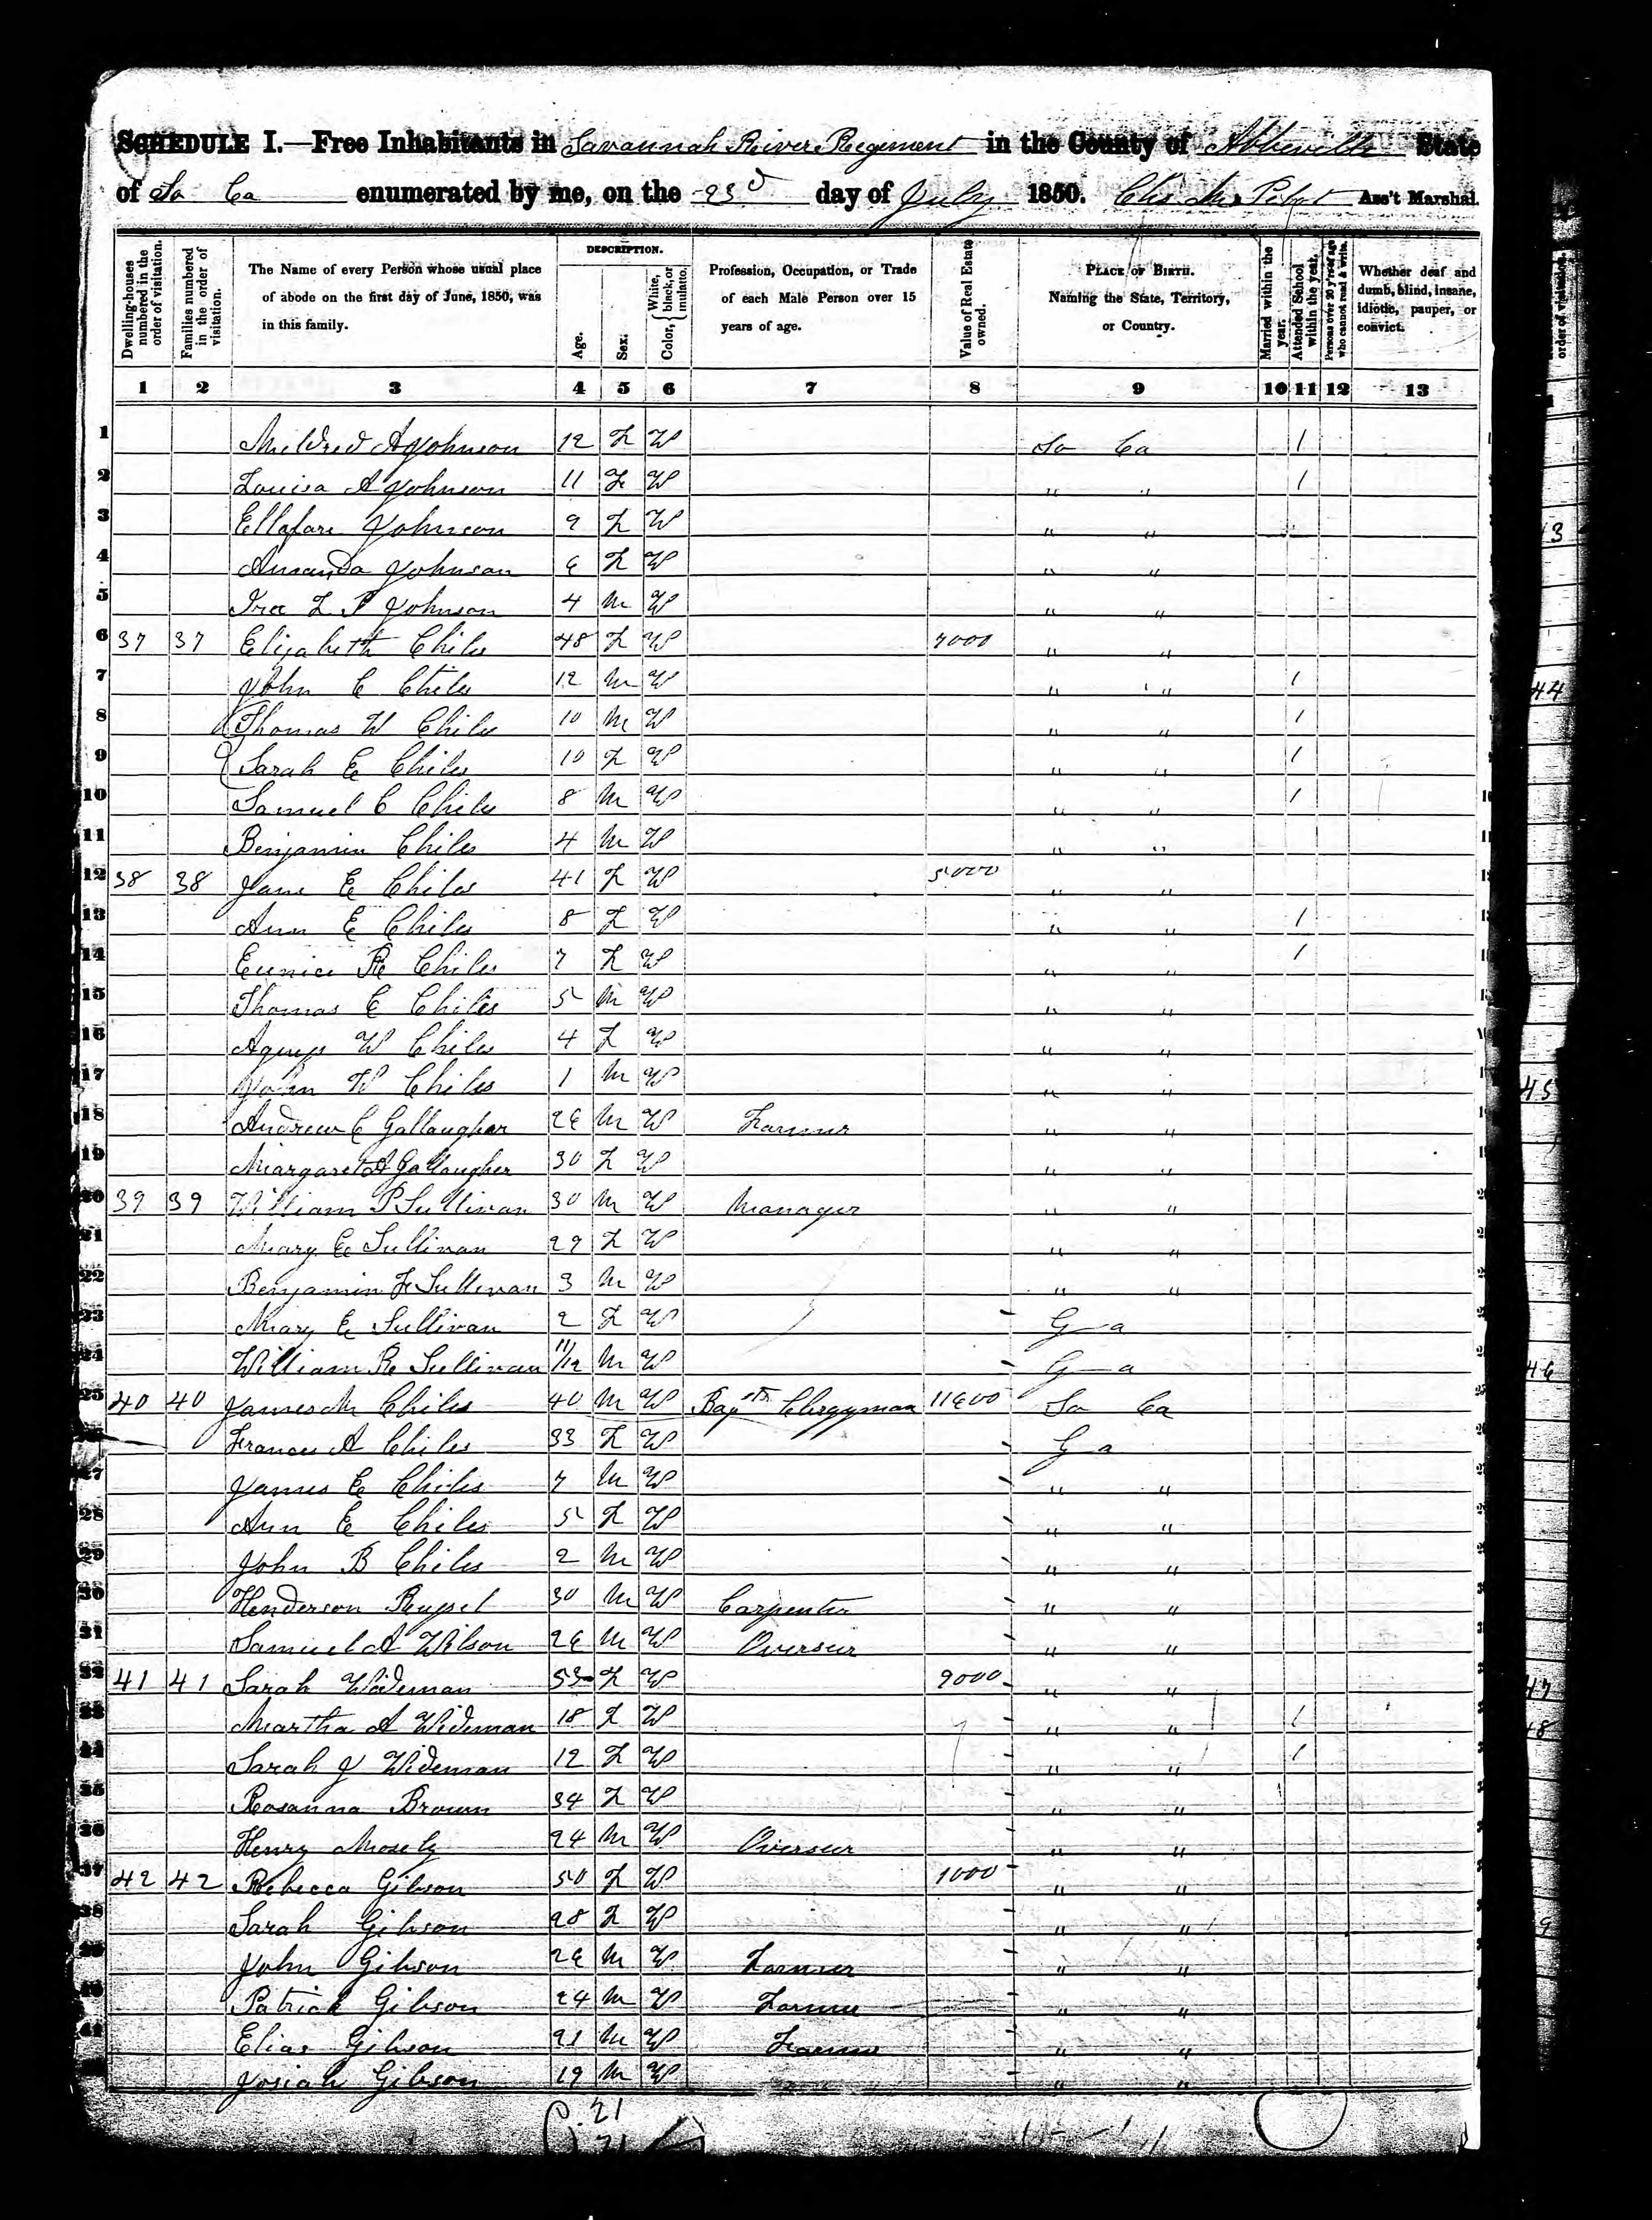 SCHEDULE I.—Free Inhabitants in Savannah River Regiment in the County of Abbeville State
of So Ca enumerated by me, on the 23d day of July 1850. Ass't Marshal.
Dwelling-houses numbered in the order of visitation.
Families numbered in the order of visitation.
The Name of every Person whose usual place of abode on the first day of June, 1850, was in this family.
DESCRIPTION.
Age.
Sex.
Color, { White, black, or mulatto.
Profession, Occupation, or Trade of each Male Person over 15 years of age.
Value of Real Estate owned.
PLACE OF BIRTH. Naming the State, Territory, or Country.
Married within the year.
Attended School within the year.
Persons over 20 y'rs of age who cannot read & write.
Whether deaf and dumb, blind, insane, idiotic, pauper, or convict.
1 2 3 4 5 6 7 8 9 10 11 12 13
1 Mildred A Johnson 12 F W So Ca 1
2 Louisa A Johnson 11 F W " " 1
3 Johnson 9 F W " "
4 Amanda Johnson 6 F W " "
5 Ira L P Johnson 4 M W " "
6 37 37 Elizabeth Chiles 48 F W 7000 " "
7 John C Chiles 12 M W " " 1
8 Thomas W Chiles 10 M W " " 1
9 Sarah E Chiles 10 F W " " 1
10 Samuel C Chiles 8 M W " " 1
11 Benjamin Chiles 4 M W " "
12 38 38 Jane E Chiles 41 F W 5000 " "
13 Ann E Chiles 8 F W " " 1
14 Eunice R Chiles 7 F W " " 1
15 Thomas E Chiles 5 M W " "
16 W Chiles 4 F W " "
17 John W Chiles 1 M W " "
18 Andrew C Gallaugher 26 M W Farmer " "
19 Margaret A Gallaugher 30 F W " "
20 39 39 William P Sullivan 30 M W Manager " "
21 Mary E Sullivan 29 F W " "
22 Benjamin F Sullivan 3 M W " "
23 Mary E Sullivan 2 F W Ga
24 William R Sullivan 11/12 M W Ga
25 40 40 James M Chiles 40 M W Bapts Clergyman 11600 So Ca
26 Frances A Chiles 33 F W Ga
27 James E Chiles 7 M W " "
28 Ann E Chiles 5 F W " "
29 John B Chiles 2 M W " "
30 Henderson 30 M W Carpenter " "
31 Samuel A Wilson 26 M W Overseer " "
32 41 41 Sarah Wideman 53 F W 9000 " "
33 Martha A Wideman 18 F W " " 1
34 Sarah J Wideman 12 F W " " 1
35 Rosanna Brown 34 F W " "
36 Henry Mosely 24 M W Overseer " "
37 42 42 Rebecca Gibson 50 F W 1000 " "
38 Sarah Gibson 28 F W " "
39 John Gibson 26 M W Farmer " "
40 Patrick Gibson 24 M W Farmer " "
41 Elias Gibson 21 M W Farmer " "
Josiah Gibson 19 M W " "
21